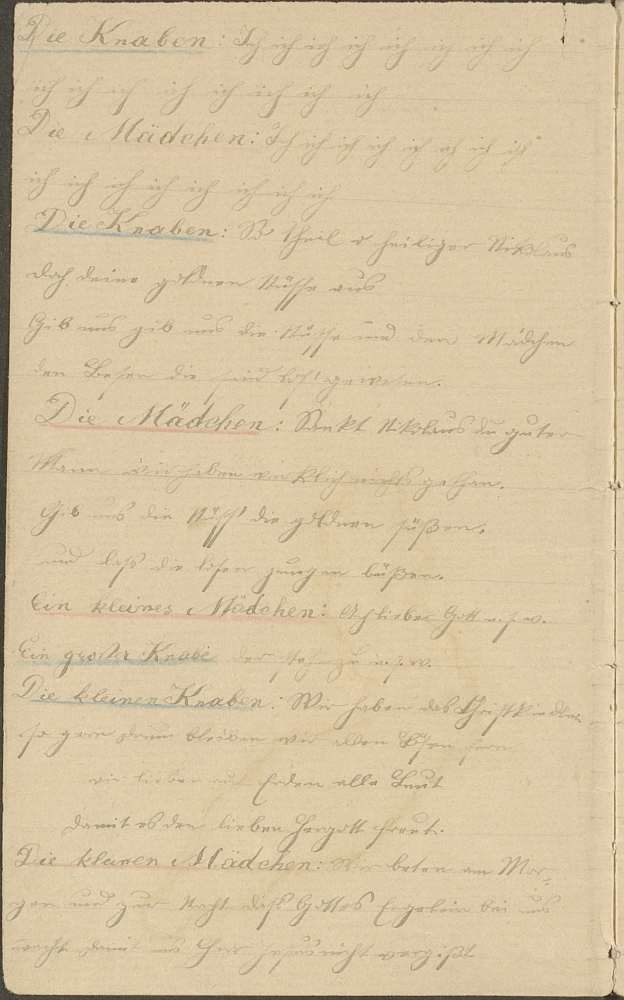 Die Knaben: Ich ich ich ich ich ich ich ich
ich ich ich ich ich ich ich ich
Die Mädchen: Ich ich ich ich ich ich ich ich
ich ich ich ich ich ich ich ich
Die Knaben: So theil o heiliger Nikolaus
doch deine goldnen Nüsse aus
Gib uns gib uns die Nüsse und den Mädchen
den Besen die sind bös gewesen.
Die Mädchen: Sankt Nikolaus du guter
Mann wir haben wirklich nichts gethan.
Gib uns die Nüss' die goldnen süßen.
und lass die bösen jungen büßen.
Ein kleines Mädchen: Ach lieber Gott u. s. w.
Ein großer Knabe der u. s. w.
Die kleinen Knaben: Wir haben das Christkindlein
so gern drum bleiben wir allem Bösen fern
wir lieben auf Erden alle Leut
damit es den lieben Hergott freut.
Die kleinen Mädchen: Wir beten am Mor-
gen und zur Nacht dass Gottes Engelein bei uns
wacht damit uns Herr Jesus nicht vergißt